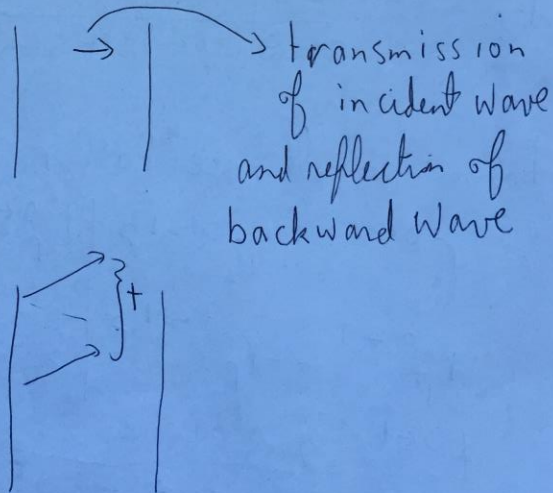 transmission
of incident wave
and reflection of
backward wave
+